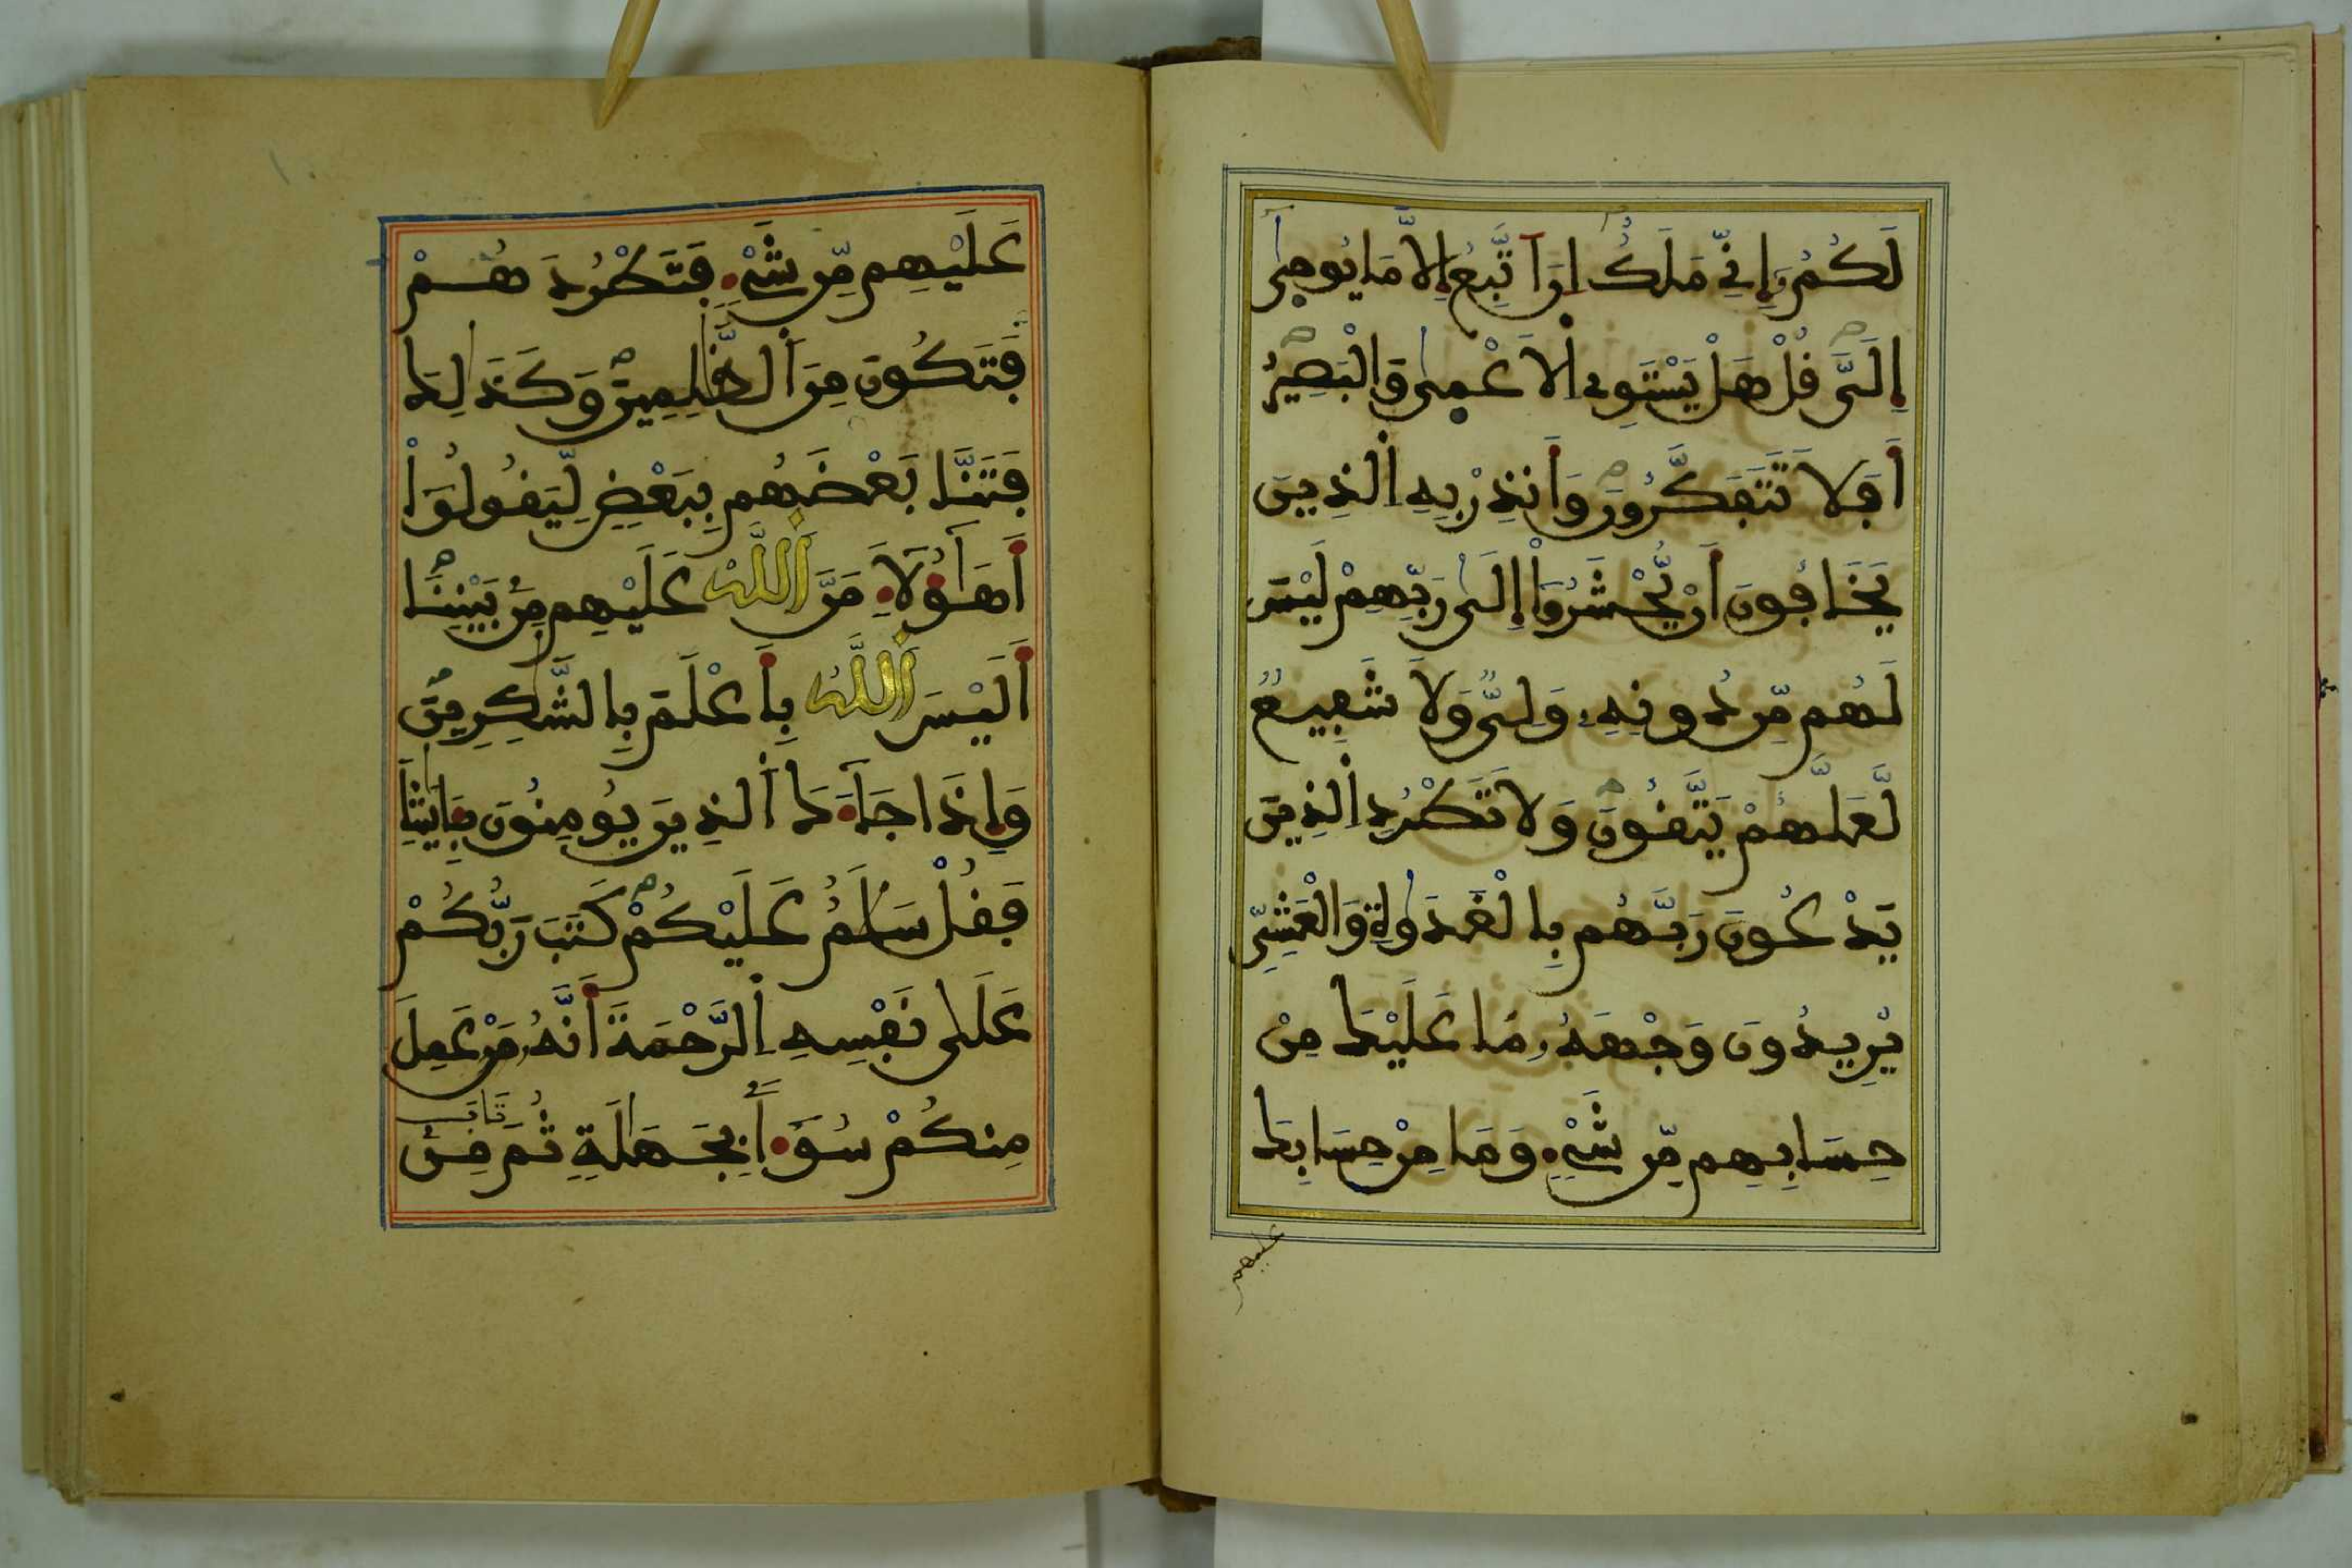 لَكُمُۥٓ إِنِّى مَلَكٌ اِنَ اَتَّبِعُ إِلَّا مَا يُوحِىٰٓ
إِلَىَّ قُلْ هَلْ يَسْتَوِى اِلَاعْمِىٰ وَالْبَصِيرُ
أَفَلَا تَتَفَكَّرُونَ وَأَنذِرْ بِهِ اِلذِينَ
يَخَافُونَ أَنْ يُّحْشَرُوٓاْ إِلَىٰ رَبِّهِمْ لَيْسَ
لَهُم مِّن دُونِهِۦ وَلِىٌّ وَلَا شَفِيعٌ
لَّعَلَّهُمْ يَتَّقُونَ وَلَا تَطْرُدِ اِلذِينَ
يَدْعُونَ رَبَّهُم بِالْغَدَوٰةِ وَالْعَشِىِّ
يُرِيدُونَ وَجْهَهُۥ مَا عَلَيْكَ مِنْ
حِسَابِهِم مِّن شَىْءٍ وَمَا مِنْ حِسَابِكَ
عليهم
عَلَيْهِم مِّن شَىْءٍ فَتَطْرُدَهُمْ
فَتَكُونَ مِنَ اَلظَّٰلِمِينَ وَكَذَٰلِكَ
فَتَنَّا بَعْضَهُم بِبَعْضٍ لِّيَقُولُوٓاْ
أَهَٰٓؤُلَآءِ مَنَّ اَللَّهُ عَلَيْهِم مِّنۢ بَيْنِنَا
أَلَيْسَ اَللَّهُ بِأَعْلَمَ بِالشَّٰكِرِينَ
وَإِذَا جَآءَكَ اَلذِينَ يُومِنُونَ بِـَٔايَٰتِنَا
فَقُلْ سَلَٰمٌ عَلَيْكُمْ كَتَبَ رَبُّكُمْ
عَلَىٰ نَفْسِهِ اِلرَّحْمَةَ أَنَّهُۥ مَنْ عَمِلَ
مِنكُمْ سُوٓءاً بِجَهَٰلَةٍ ثُمَّ تَابَ مِنۢ